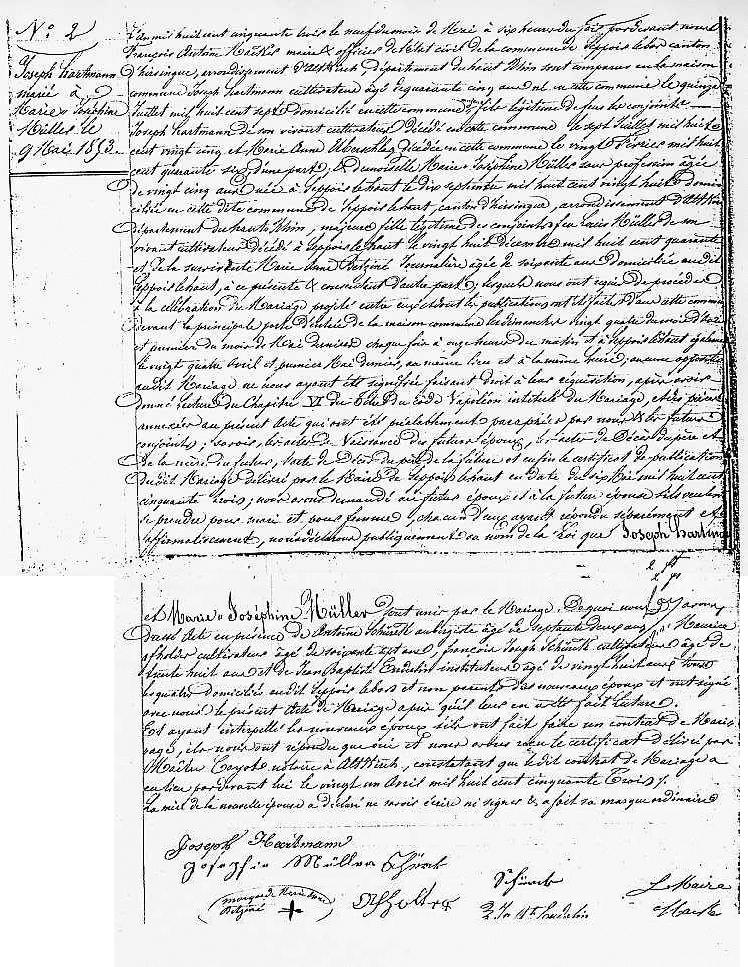 N° 2
Joseph hartmann
marié à
Marie Joséphine
Müller le
9 Mai 1853
L'an mil huit cent cinquante trois le neuf du mois de Mai à six heures du soir, par devant nous
François Antoine maire & officier de l'état civil de la commune de Seppois le bas canton
d'hirsingue, arrondissement d'Altkirch, département du haut Rhin sont comparus en la maison
commune Joseph hartmann cultivateur âgé de quarante cinq ans né en cette commune le quinze
Juillet mil huit cent sept domicilié en cette commune fils légitime de feus les conjoints
Joseph hartmann de son vivant cultivateur décédé en cette commune le sept Juillet mil huit
cent vingt cinq et Marie Anne décédée en cette commune le vingt Février mil huit
cent quarante six d'une part; & demoiselle Marie Joséphine Müller sans profession âgée
de vingt cinq ans née à Seppois le haut le dix septembre mil huit cent vingt huit domi
ciliée en cette dite commune de Seppois le haut, canton d'hirsingue, arrondissement d'Altkirch
département du haut Rhin, majeure fille légitime des conjoints feu Louis Müller de son
vivant cultivateur décédé à Seppois le haut le vingt huit Décembre mil huit cent quarante
et de la survivante Marie Anne Journalière âgée de soixante ans domiciliée au dit
Seppois le haut, à ce présente & consentant d'autre part; lesquels nous ont requis de procéder
à la célébration du Mariage projeté entre eux et dont les publications ont été faites dans cette commune
devant la principale porte d'entrée de la maison commune les dimanches vingt quatre du mois d'Avril
et premier du mois de Mai dernier chaque fois à onze heures du matin et à Seppois le haut également
le vingt quatre Avril et premier Mai dernier, au même lieu et à la même heure; aucune opposition
audit Mariage ne nous ayant été signifiée faisant droit à leur réquisition, après avoir
donné lecture du Chapitre VI du titre du Code Napoléon intitulé du Mariage, et des pièces
annexées au présent acte qui ont été préalablement paraphées par nous & les futurs
conjoints; savoir, les actes de Naissance des futurs époux, les actes de Décès du père et
de la mère du futur, l'acte de Décès du père de la future et enfin le certificat de publication
du dit Mariage délivré par le Maire de Seppois le haut en date du six Mai mil huit cent
cinquante trois; nous avons demandé au futur époux et à la future épouse s'ils veulent
se prendre pour mari et pour femme, chacun d'eux ayant répondu séparément et
affirmativement, nous déclarons publiquement au nom de la Loi que Joseph hartmann
et Marie Joséphine Müller sont unis par le Mariage. De quoi nous avons
dressé acte en présence de Antoine Schürck aubergiste âgé de septante deux ans, Maurice
cultivateur âgé de soixante sept ans, François Joseph Schürck cultivateur âgé de
trente huit ans et de Jean Baptiste instituteur âgé de vingt huit ans tous
les quatre domiciliés au dit Seppois le bas et non parents des nouveaux époux et ont signé
avec nous le présent Acte de Mariage après qu'il leur en a été fait lecture.
Et ayant interpellé les nouveaux époux s'ils ont fait faire un contrat de Maria
ge, ils nous ont répondu que oui et nous avons reçu le certificat délivré par
Maître notaire à Altkirch, constatant que le dit contrat de Mariage a
eu lieu par devant lui le vingt un Avril mil huit cent cinquante Trois;
La mère de la nouvelle épouse a déclaré ne savoir écrire ni signer & a fait sa marque ordinaire
Joseph Hartmann
Josephin Müller Schürck
Schürck
Le Maire
marque de Marie Anne
+